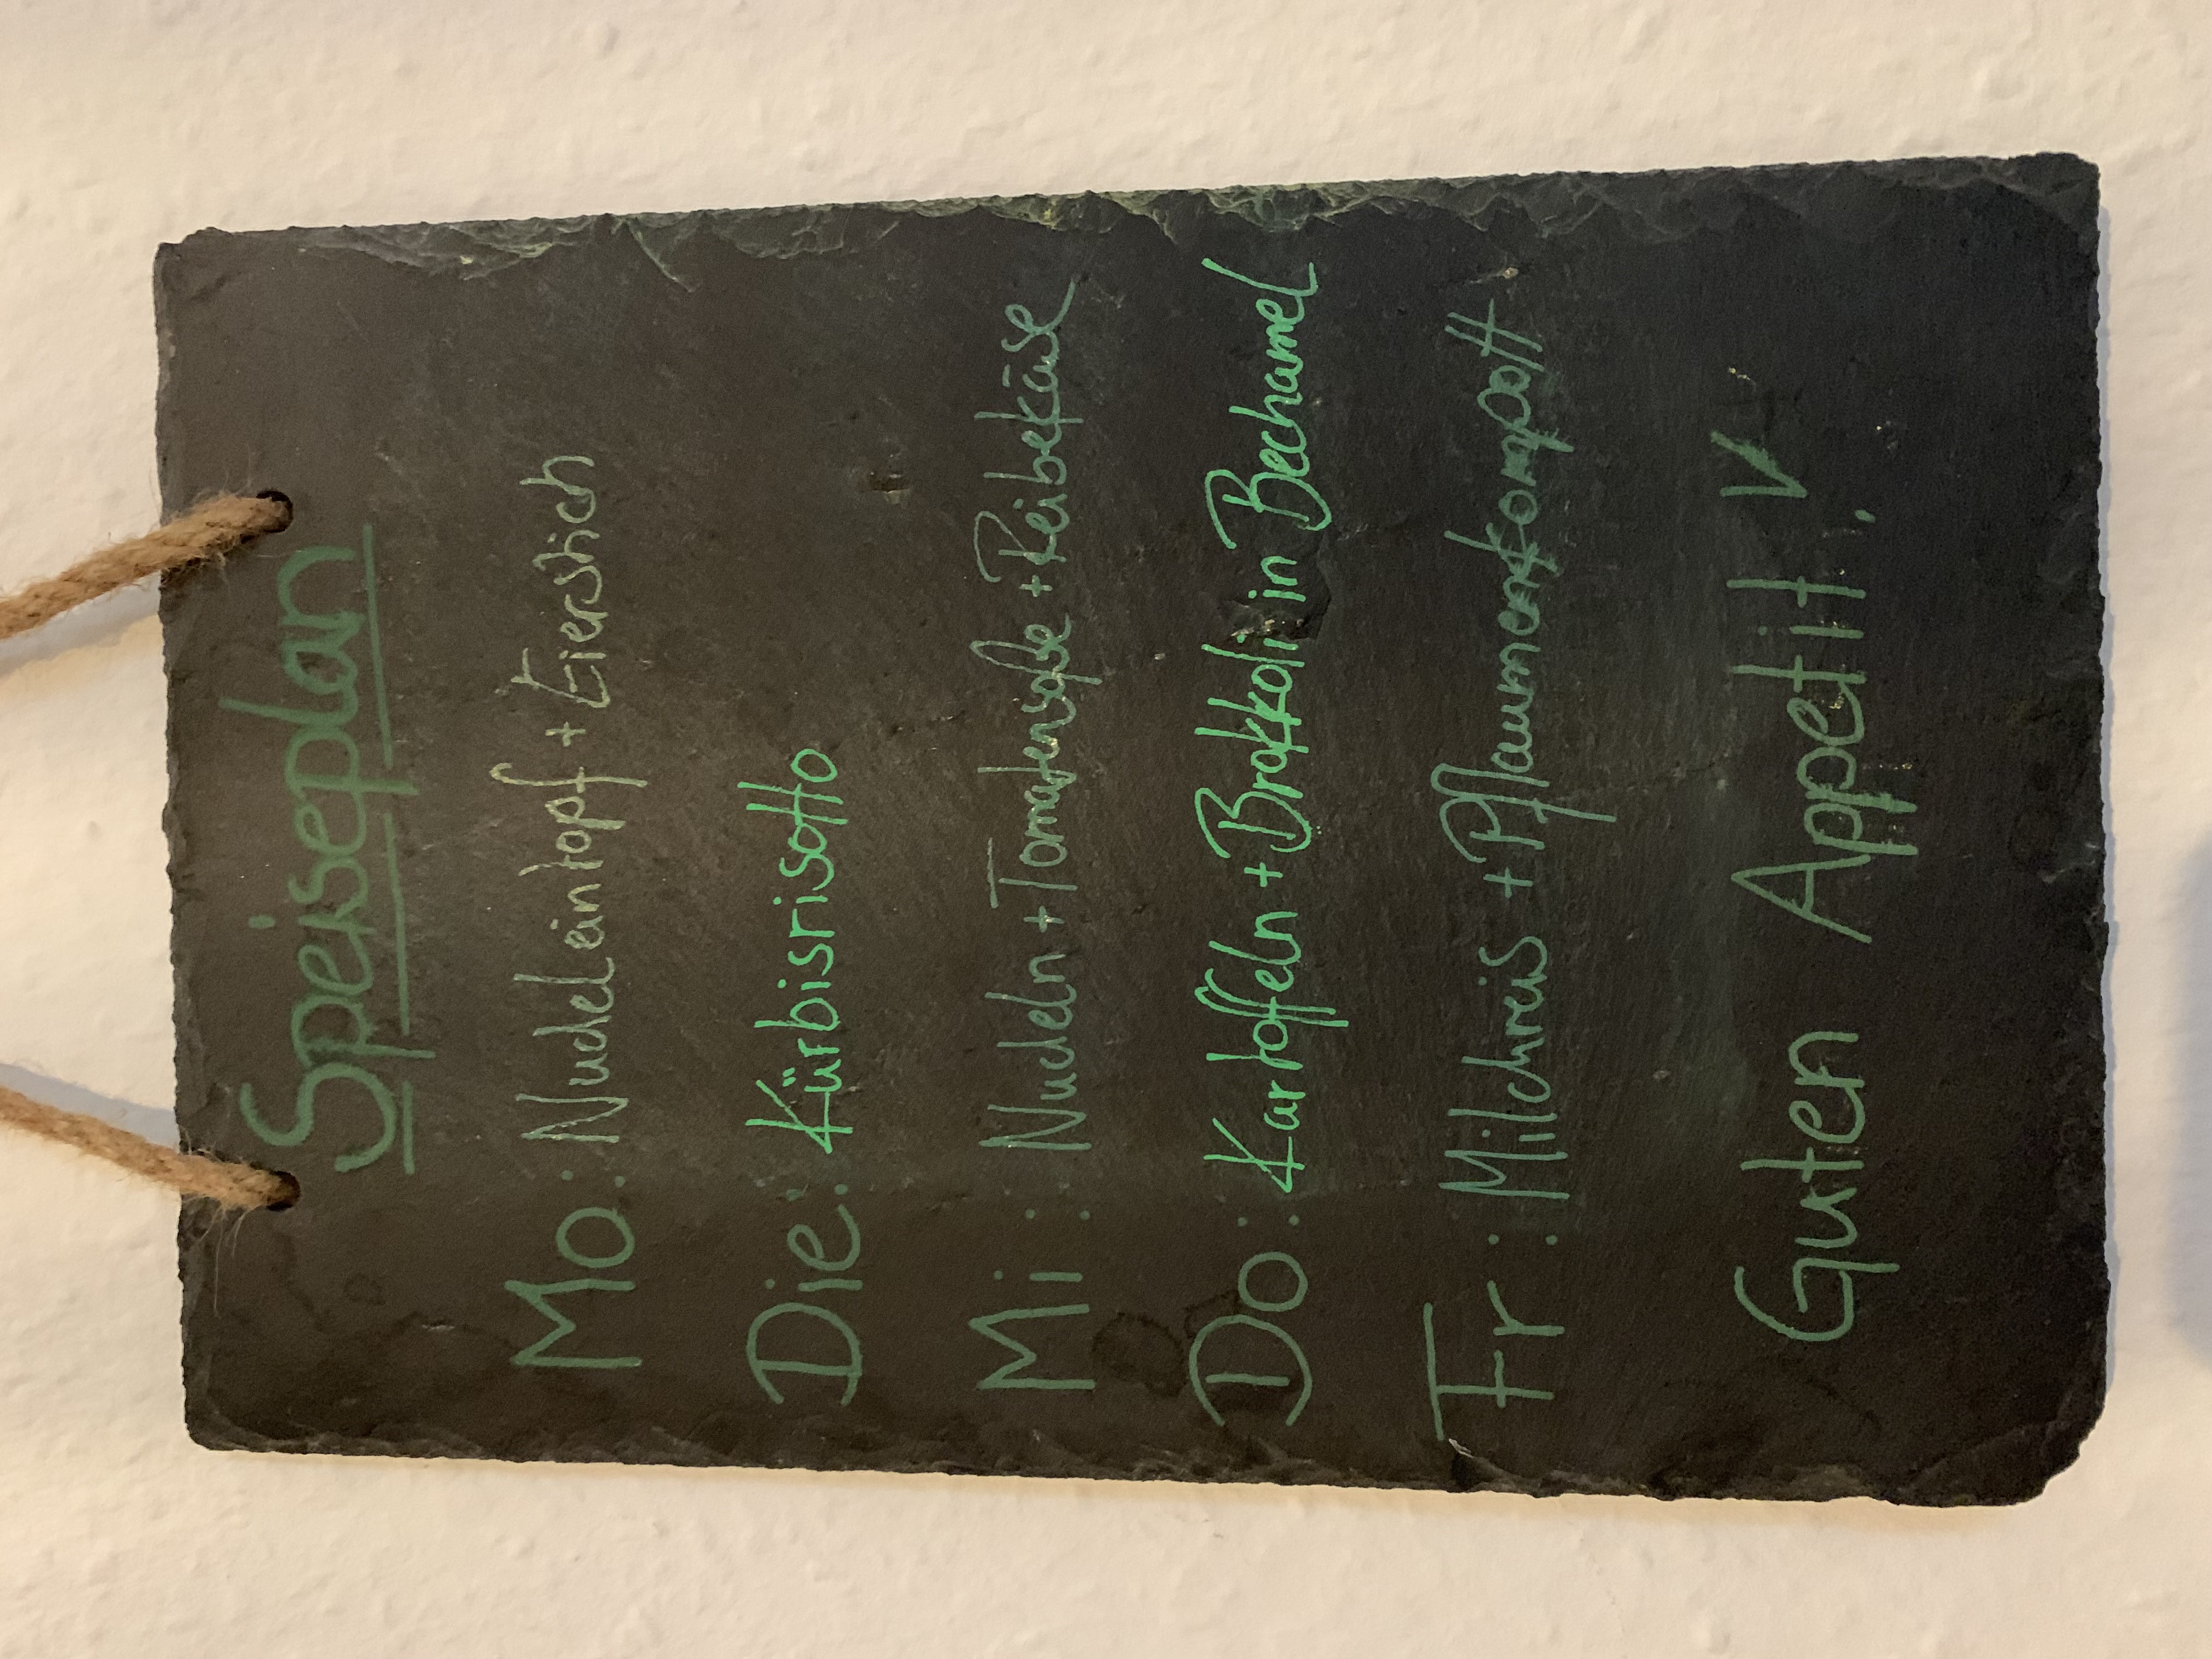 Speiseplan
Mo: Nudeleintopf + Eierstich
Die: Kürbisrisotto
Mi: Nudeln + Tomatensoße + Reibekäse
Do: Kartoffeln + Brokkoli in Bechamel
Fr: Milchreis + Pflaumenkompott
Guten Appetit!